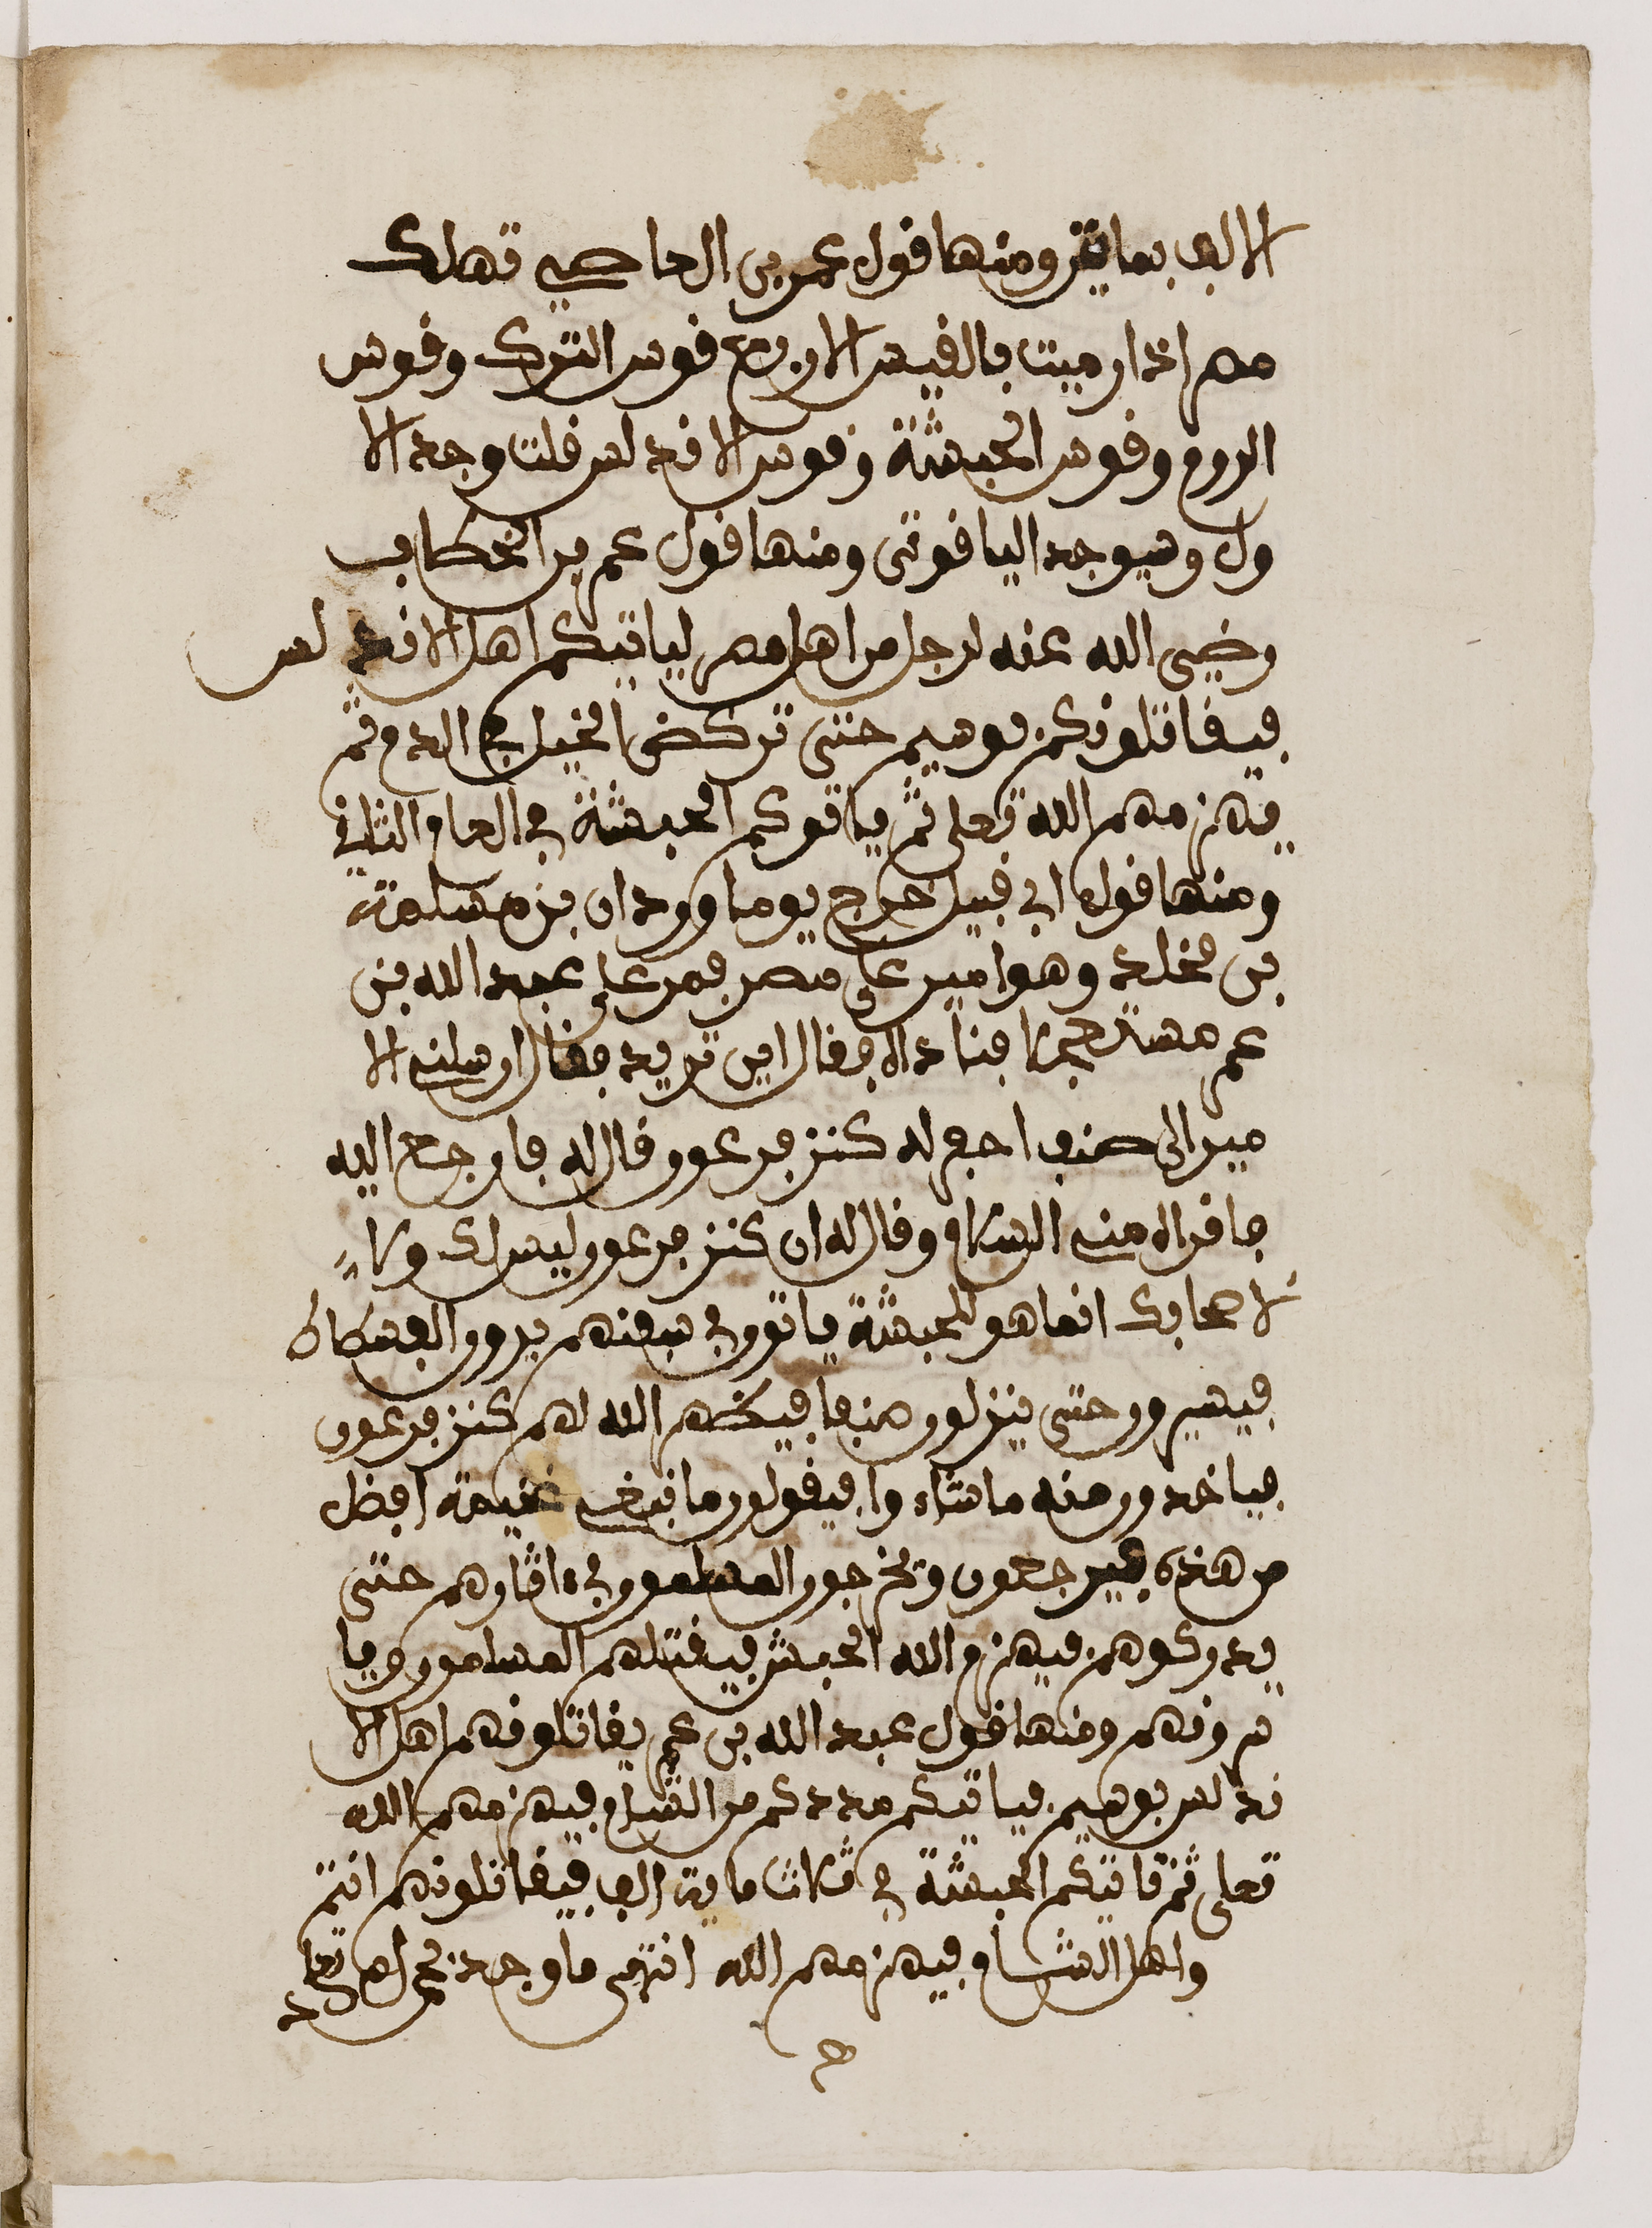 الالف بمايتن ومنها قول عمر بن العاصي تهلك
مصر اذا رميت بالقيس الاربع قوس الترك وقوس
الروم وقوس الحبشة وقوس الاندلس قلت وجد الا
ول وسيوجد الياقوتى ومنها قول عمر بن الخطاب
رضي الله عنه لرجل من اهل مصر لياتيكم اهل الاندلس
فيقاتلونكم بوسيم حتى تركض الخيل في الدم ثم
يهزمهم الله تعلى ثم ياتوكم الحبشة في العام الثاني
ومنها قول ابي قبيل خرج يوما وردان بن مسلمة
بن مخلد وهو امير على مصر فمر على عبد الله بن
عمر مستعجلا فناداه فقال اين تريد فقال ارسلني الا
مير الى منف احفر له كنز فرعون قال له فارجع اليه
فاقراه مني السلام وقال له ان كنز فرعون ليس لك ولا
لاصحابك انما هو للحبشة ياتون في سفنهم يرون الفسطاط
فيسيرون حتى ينزلون منفا فيظهر الله لهم كنز فرعون
فياخدون منه ما شاء وا فيقولون ما نبغي غنيمة افضل
من هذه فيرجعون ويخرجون المسلمون في ءاثارهم حتى
يدركوهم فيهزم الله الحبش فيقتلهم المسلمون ويا
سرونهم ومنها قول عبد الله بن عمر يقاتلونهم اهل الا
ندلس بوسيم فياتيكم مددكم من الشام فيهزمهم الله
تعلى ثم تاتيكم الحبشة في ثلاث ماية الف فيقاتلونهم انتم
واهل الشام فيهزمهم الله انتهى ما وجد بحمد الله تعلى